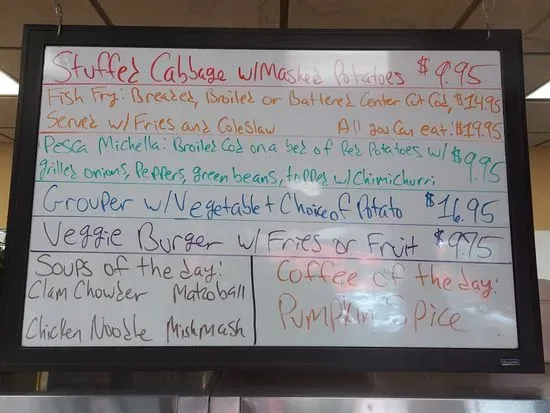 Stuffed Cabbage w/Mashed Potatoes $9.95
Fish Fry: Breaded, Broiled or Battered Center Cut Cod, $14.95
Served w/ Fries and Coleslaw All you can eat: $19.95
Pesca Michella: Broiled Cod on a bed of Red Potatoes w/ $9.95
grilled onions, Peppers, green beans, topped w/Chimichurri
Grouper w/Vegetable + Choice of Potato $16.95
Veggie Burger w/ Fries or Fruit $9.75
Soups of the day:
Clam Chowder Matzoball
Chicken Noodle Mishmash
Coffee of the day:
Pumpkin Spice